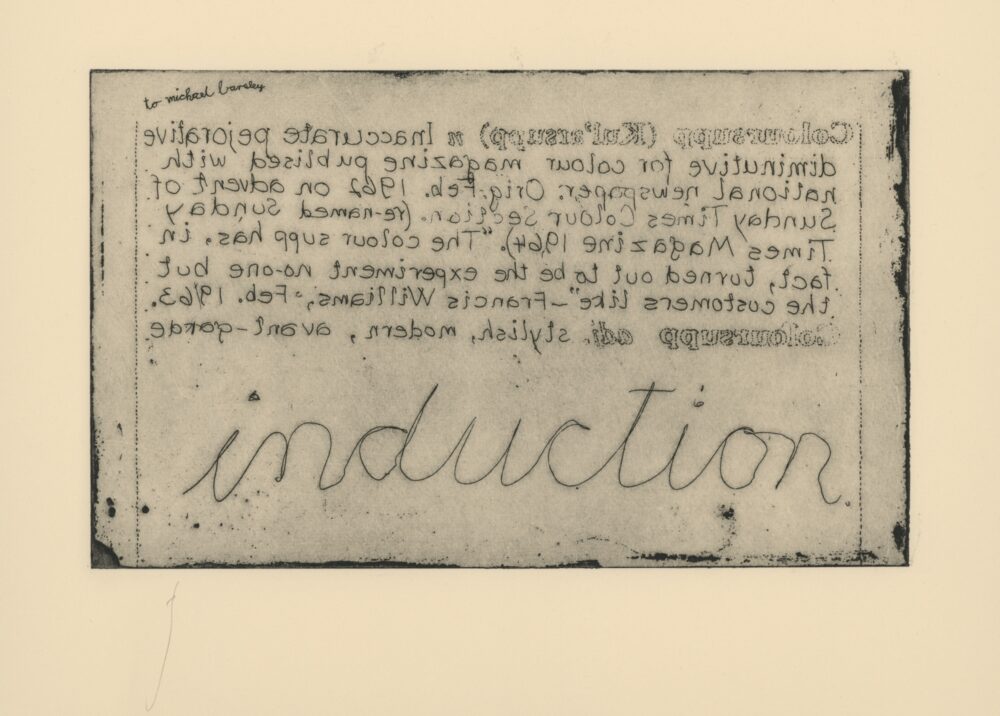 to michael barsley
Coloursupp (Kul'ersupp) n Inaccurate pejorative
diminutive for colour magazine publised with
national newspaper. Orig. Feb. 1962 on advent of
Sunday Times Colour Section. (re-named Sunday
Times Magazine 1964). "The colour supp has, in
fact, turned out to be the experiment no-one but
the customers like" - Francis Williams, Feb. 1963.
Coloursupp adj. stylish, modern, avant-garde
induction.